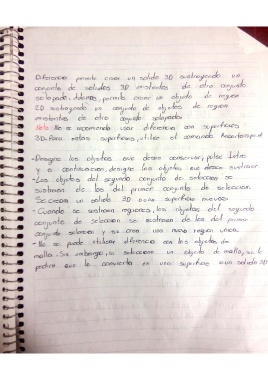 Diferencia permite crear un solido 3D sustrayendo un
conjunto de solidos 3D existentes de otro conjunto
solapado. Ademas, permite crear un objeto de region
2D sustrayendo un conjunto de objetos de region
existentes de otro conjunto solapados
Nota No se recomienda usar diferencia con superficies
3D. Para estas superficies, utilice el comando
-Designe los objetos que desea conservar, pulse Intro
y a continuacion, designe los objetos que desea sustraer
-Los objetos del segundo conjunto de seleccion se
sustraen de los del primer conjunto de seleccion.
Se crea un solido 3D o una superficie nuevos
-Cuando se sustraen regiones, los objetos del segundo
conjunto de seleccion se sustraen de los del primer
conjunto seleccion y se crea una nueva region unica.
-No se puede utilizar diferencia con los objetos de
malla. Sin embargo, si selecciona un objeto de malla, se le
pedira que lo convierta en una superficie o un solido 3D